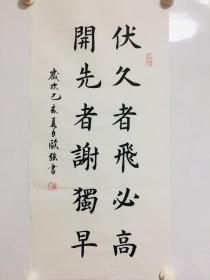 伏久者飛必高
開先者謝獨早
歲次己亥夏月歐強書